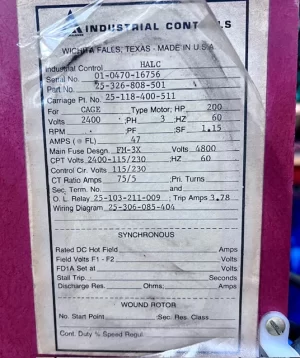 INDUSTRIAL CONT LS
WICHITA FALLS, TEXAS - MADE IN U.S.A.
Industrial Control HALC
Serial No. 01-0470-16756
Part No. 25-326-808-501
Carriage Pt. No. 25-118-400-511
For CAGE Type Motor; HP 200
Volts 2400 PH 3 HZ 60
RPM PF SF 1.15
AMPS (@ FL) 47
Main Fuse Desgn. FM-3X Volts 4800
CPT Volts 2400-115/230 HZ 60
Control Cir. Volts 115/230
CT Ratio Amps 75/5 Pri. Turns
Sec. Term. No. and
O. L. Relay 25-103-211-009 ; Trip Amps 3.78
Wiring Diagram 25-306-085-404
SYNCHRONOUS
Rated DC Hot Field Amps
Field Volts F1 - F2 Volts
FD1A Set at Volts
Stall Trip Seconds
Discharge Res. Ohms: Amps
WOUND ROTOR
No. Start Point :Sec. Res. Class
Cont. Duty % Speed Regul.